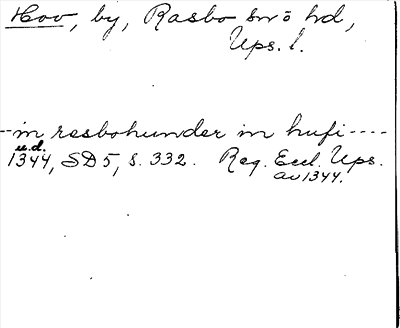 Hov, by, Rasbo sn o hd,
Ups. l.
--in rasbohunder in hufi----
u.d.
1344, SD 5, s. 332. Reg. Eccl. Ups.
av 1344.